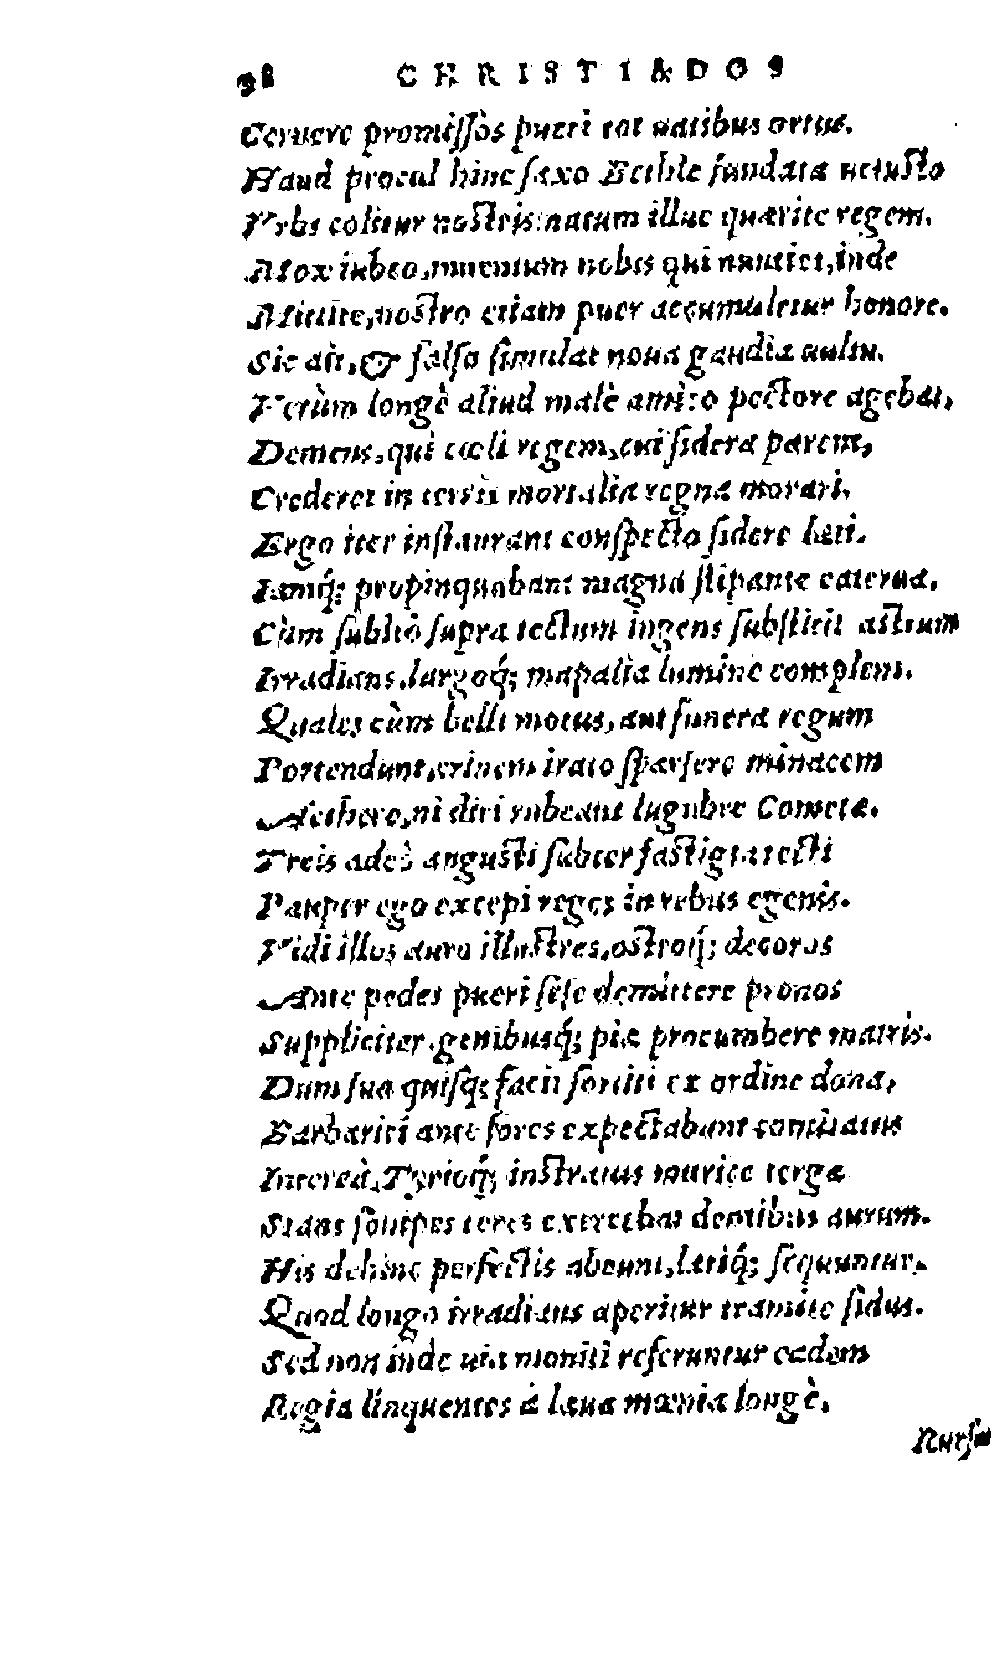 98 CHRISTIADOS
Cernere promissos pueri tot uatibus ortus.
Haud procul hinc saxo Bethle fundata uetusto
Vrbs colitur nostris: natum illuc quærite regem.
Mox iubeo, inuentum nobis qui nuntiet, inde
Mittite, nostro etiam puer accumuletur honore.
Sic ait, & falso simulat noua gaudia uultu.
Verùm longè aliud malè amico pectore agebat,
Demens, qui cœli regem, cui sidera parent,
Crederet in terris mortalia regna morari.
Ergo iter instaurant conspecto sidere læti.
Iamq́; propinquabant magna stipante caterua,
Cùm subitò supra tectum ingens substitit astrum
Irradians, largoq́; mapalia lumine complens.
Quales cùm belli motus, aut funera regum
Portendunt, crinem irato sparsere minacem
Aethere, ni diri rubeant lugubre Cometæ.
Treis adeò angusti subter fastigia tecti
Pauper ego excepi reges in rebus egenis.
Vidi illos auro illustres, ostroq́; decoros
Ante pedes pueri sese demittere pronos
Suppliciter, genibusq́; piæ procumbere matris.
Dum sua quisq; facit sortiti ex ordine dona,
Barbarici ante fores expectabant comitatus
Intereà, Tyrioq́; instratus murice terga
Stans sonipes teres exercebat dentibus aurum.
His dehinc perfectis abeunt, lætiq́; sequuntur,
Quod longo irradians aperitur tramite sidus.
Sed non inde uia moniti referuntur eadem
Regia linquentes à læua mœnia longè.
Rursu